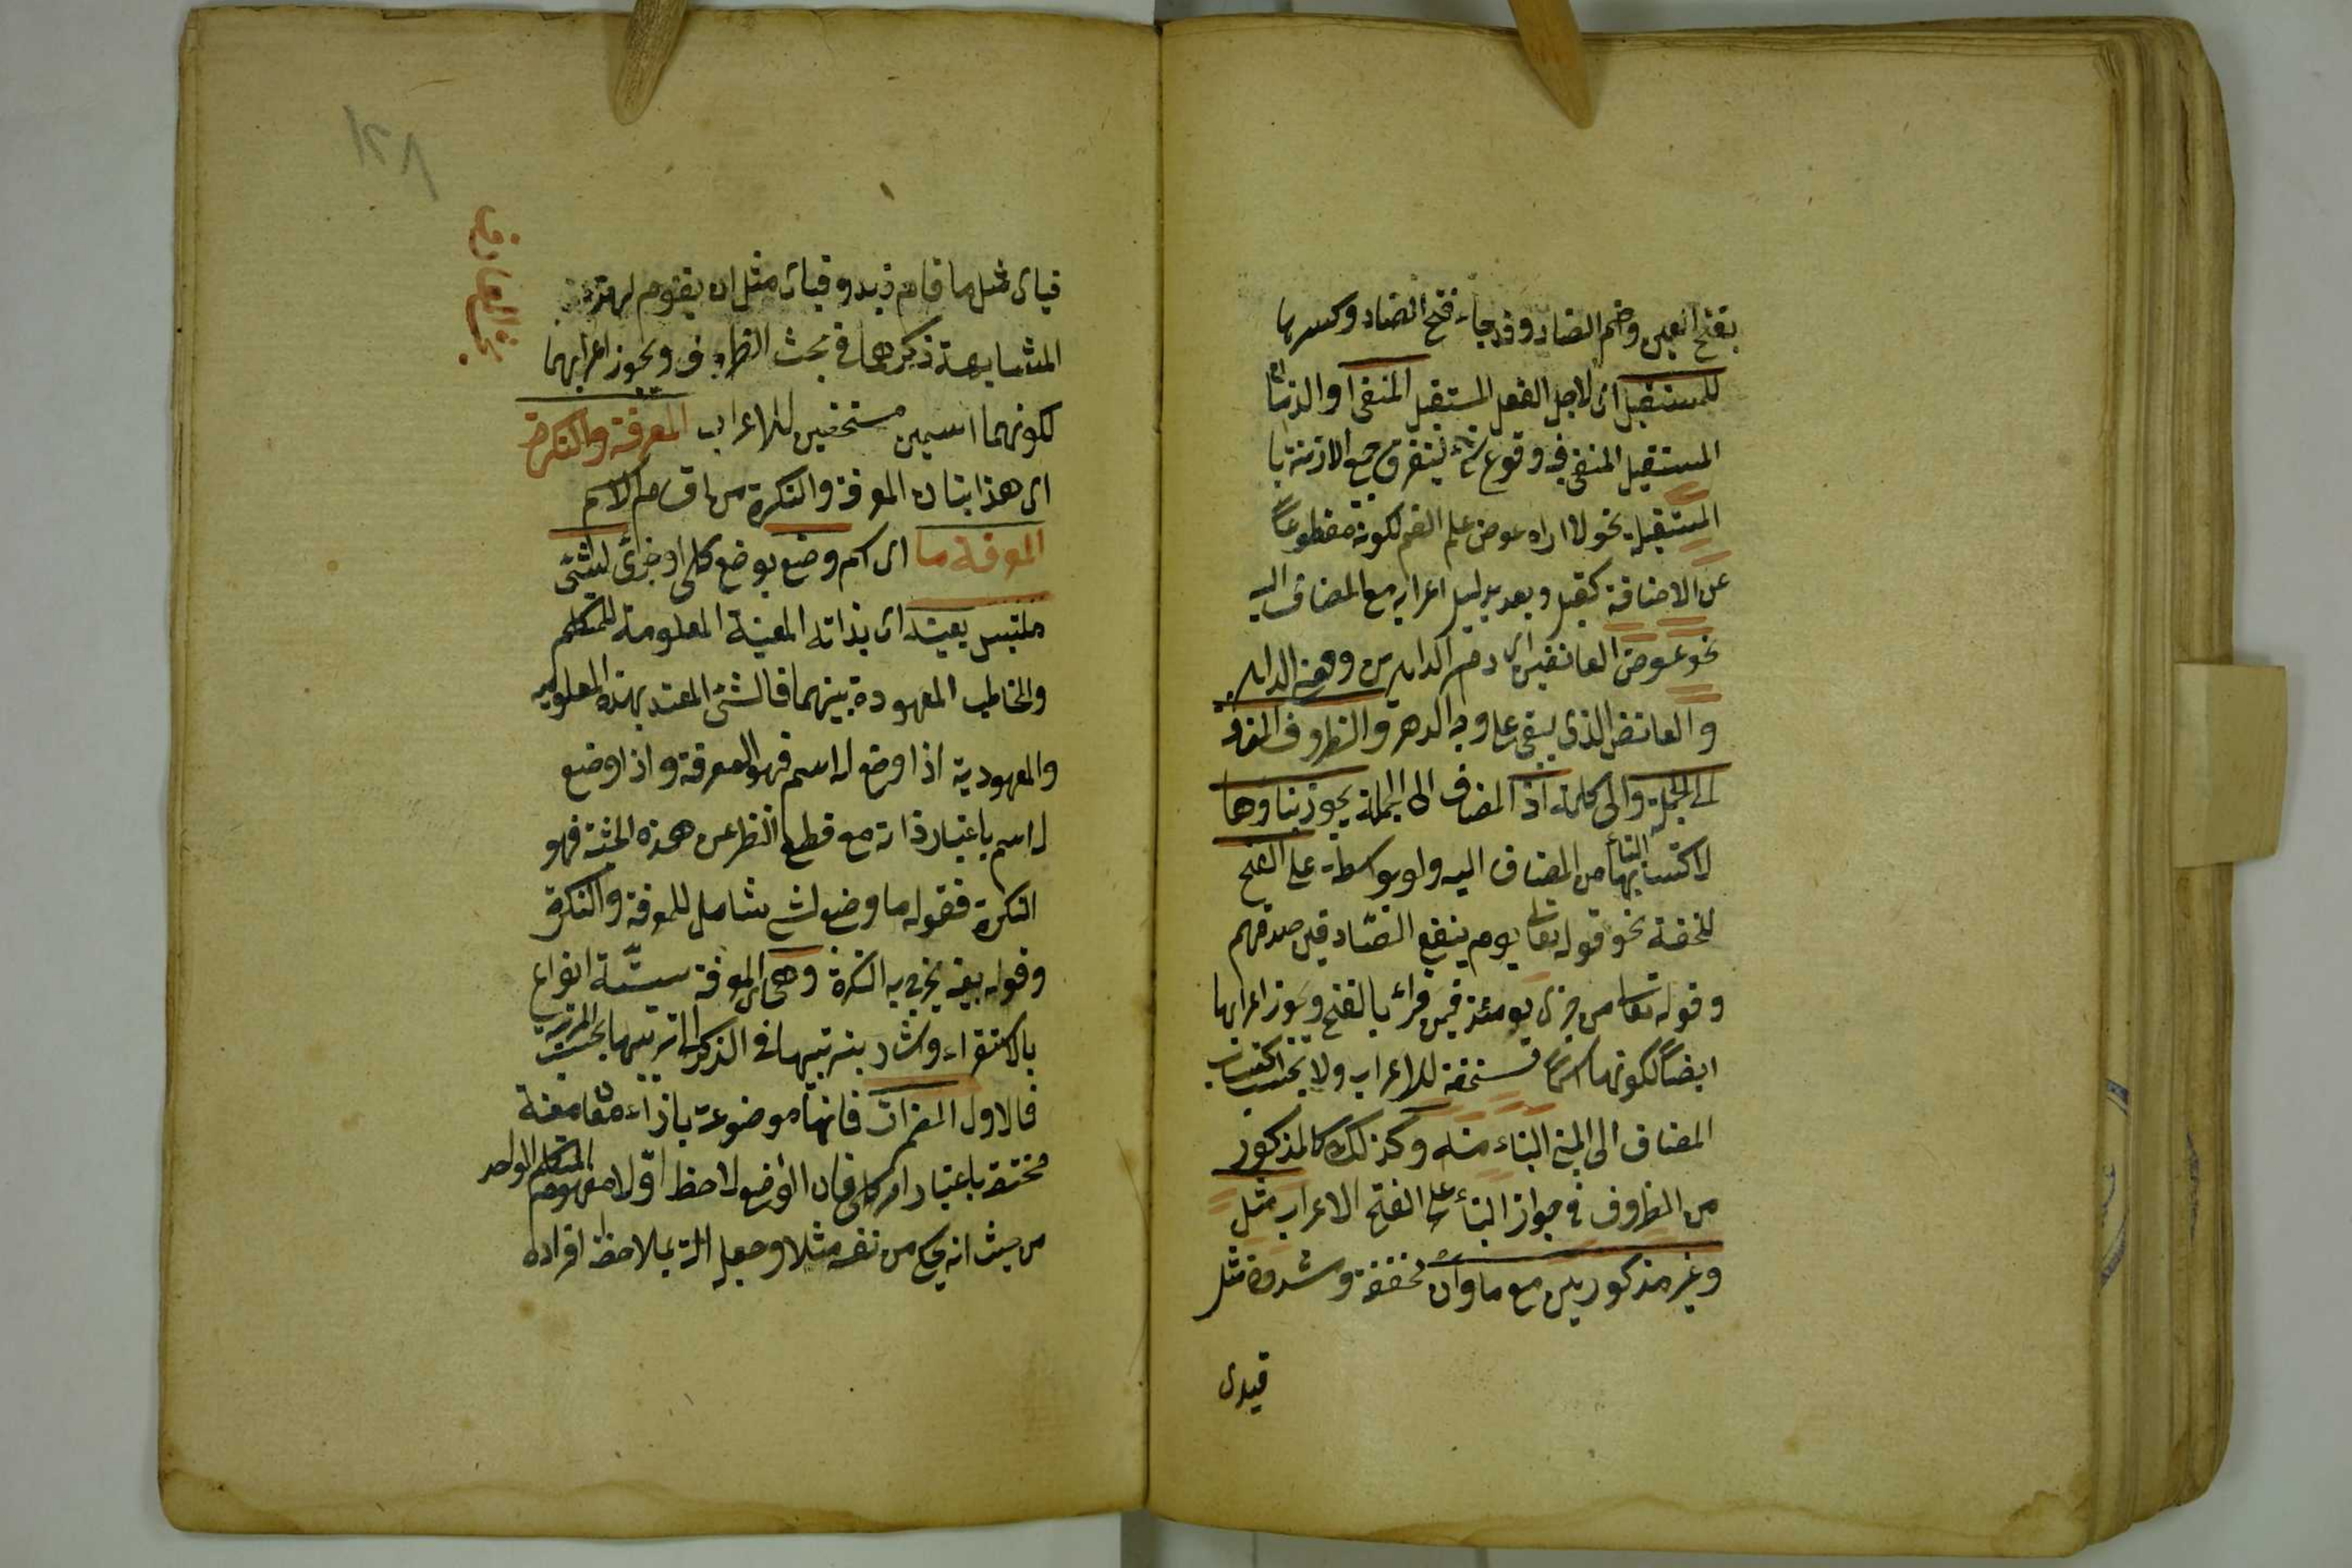 بفتح العين وضم الضاد وقد جاء فتح الضاد وكسرها
للمستقبل اى لاجل الفعل المستقبل المنفى او الزمان
المستقبل المنفى فيه وقوع شئ ليستغرق جميع الازمنة
المستقبلية نحو لا اراه عوض على الضم لكونه مقطوعاً
عن الاضافة كقبل وبعد بدليل اعرابه مع المضاف اليه
نحو عوض العائضين اى دهر الداهرين ومعنى الداهر
والعائض الذى يبقى على وجه الدهر والظروف المضافة
الى الجملة والى كلمة اذ المضاف الى الجملة يجوز بناوها
لاكتسابها البناء من المضاف اليه ولو بواسطة على الفتح
للخفة نحو قوله تعالى يوم ينفع الصادقين صدقهم
وقوله تعالى من خزى يومئذ فيمن قرأ بالفتح ويجوز اعرابها
ايضاً لكونها اسماً مستحقة للاعراب ولا يجب اكتساب
المضاف الى المبنى البناء منه وكذلك كالمذكور
من الظروف فى جواز البناء على الفتح الاعراب مثل
وغير مذكورين مع ما وان مخففة ومشددة مثل
قيامى
قيامى مثل ما قام زيد وقيامى مثل ان يقوم لهذه
المشابهة ذكرهما فى بحث الظروف ويجوز اعرابهما
لكونهما اسمين مستحقين للاعراب المعرفة والنكرة
اى هذا بيان المعرفة والنكرة من اقسام الاسم
المعرفة ما اى اسم وضع بوضع كلى او جزئى لشئ
ملتبس بعينه اى بذاته المعينة المعلومة للمتكلم
والمخاطب المعهودة بينهما فالشئ المقيد بهذه المعلومية
والمعهودية اذا وضع له اسم فهو المعرفة واذا وضع
له اسم باعتبار ذاته مع قطع النظر عن هذه الحيثية فهو
النكرة فقوله ما وضع لشئ شامل للمعرفة والنكرة
وقوله بعينه يخرج به النكرة وهى اى المعرفة ستّة انواع
بالاستقراء واشار بترتيبها فى الذكر الى ترتيبها بحسب المرتبة
فالاول المضمرات فانها موضوعة بازاء معان معينة
مختصة باعتبار امر كلى فان الواضع لاحظ اولا مفهوم المتكلم الواحد
من حيث انه يحكى عن نفسه مثلا وجعله آلة لملاحظة افراده